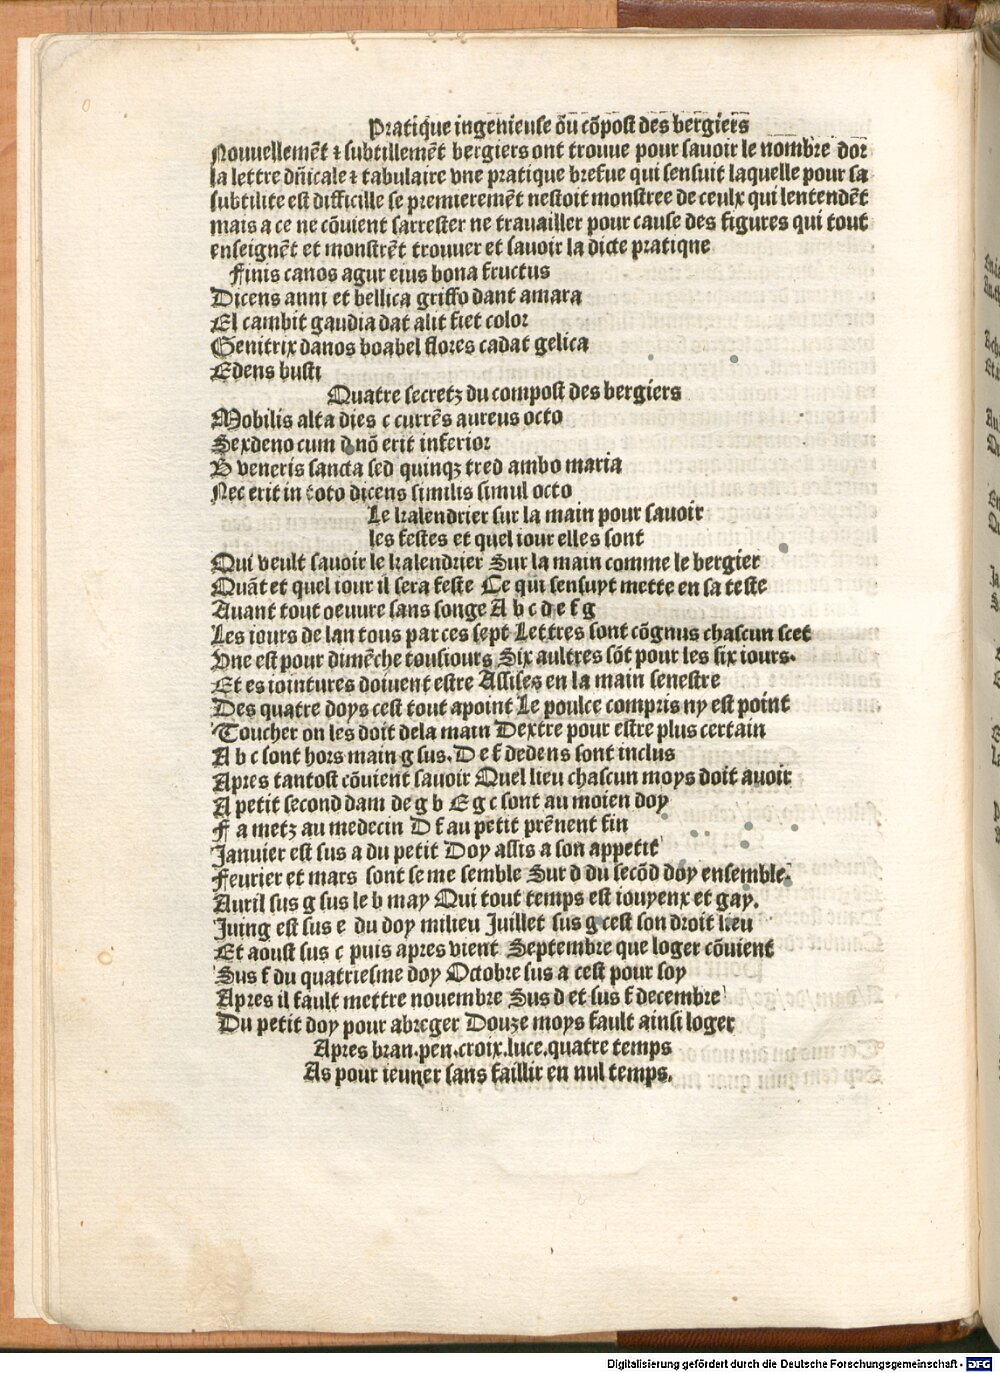 Pratique ingenieuse du cõpost des bergiers
Nouuellemẽt ⁊ subtillemẽt bergiers ont trouue pour sauoir le nombre dor
la lettre dñicale ⁊ tabulaire vne pratique brefue qui sensuit laquelle pour sa
subtilite est difficille se premieremẽt nestoit monstree de ceulx qui lentendẽt
mais a ce ne cõuient sarrester ne trauailler pour cause des figures qui tout
enseignẽt et monstrẽt trouuer et sauoir la dicte pratique
Finis canos agur eius bona fructus
Dicens anni et bellica griffo dant amara
El cambit gaudia dat alit fiet color
Genitrix danos boabel flores cadat gelica
Edens busti
Quatre secretz du compost des bergiers
Mobilis alta dies c currẽs aureus octo
Sexdeno cum d nõ erit inferior
B veneris sancta sed quinqꝫ tred ambo maria
Nec erit in toto dicens similis simul octo
Le kalendrier sur la main pour sauoir
les festes et quel iour elles sont
Qui veult sauoir le kalendrier Sur la main comme le bergier
Quãt et quel iour il sera feste Ce qui sensuyt mette en sa teste
Auant tout oeuure sans songe A b c d e f g
Les iours de lan tous par ces sept Lettres sont cõgnus chascun scet
Vne est pour dimẽche tousiours Six aultres sõt pour les six iours.
Et es iointures doiuent estre Assises en la main senestre
Des quatre doys cest tout apoint Le poulce compris ny est point
Toucher on les doit dela main Dextre pour estre plus certain
A b c sont hors main g sus. D e f dedens sont inclus
Apres tantost cõuient sauoir Quel lieu chascun moys doit auoir
A petit second dam de g b E g c sont au moien doy
F a metz au medecin D f au petit prẽnent fin
Janvier est sus a du petit Doy assis a son appetit
Feurier et mars sont se me semble Sur d du secõd doy ensemble.
Auril sus g sus le b may Qui tout temps est iouyenx et gay.
Juing est sus e du doy milieu Juillet sus g cest son droit lieu
Et aoust sus c puis apres vient Septembre que loger cõuient
Sus f du quatriesme doy Octobre sus a cest pour soy
Apres il fault mettre nouembre Sus d et sus f decembre
Du petit doy pour abreger Douze moys fault ainsi loger
Apres bran.pen.croix.luce.quatre temps
As pour ieuner sans faillir en nul temps.
Digitalisierung gefördert durch die Deutsche Forschungsgemeinschaft - DFG